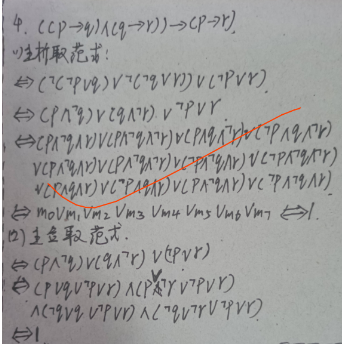 4. ((p→q)∧(q→r))→(p→r)
(1)主析取范式:
⇔(¬(¬p∨q)∨¬(¬q∨r))∨(¬p∨r)
⇔(p∧¬q)∨(q∧¬r)∨¬p∨r
⇔(p∧¬q∧r)∨(p∧¬q∧¬r)∨(p∧q∧¬r)∨(¬p∧q∧¬r)
∨(¬p∧q∧r)∨(¬p∧¬q∧r)∨(¬p∧¬q∧¬r)
∨(p∧q∧r)∨(¬p∧q∧r)∨(p∧¬q∧r)∨(¬p∧¬q∧r)
⇔m0∨m1∨m2∨m3∨m4∨m5∨m6∨m7⇔1.
(2)主合取范式.
⇔(p∧¬q)∨(q∧¬r)∨(¬p∨r)
⇔(p∨q∨¬p∨r)∧(p∨¬r∨¬p∨r)
∧(¬q∨q∨¬p∨r)∧(¬q∨¬r∨¬p∨r)
⇔1